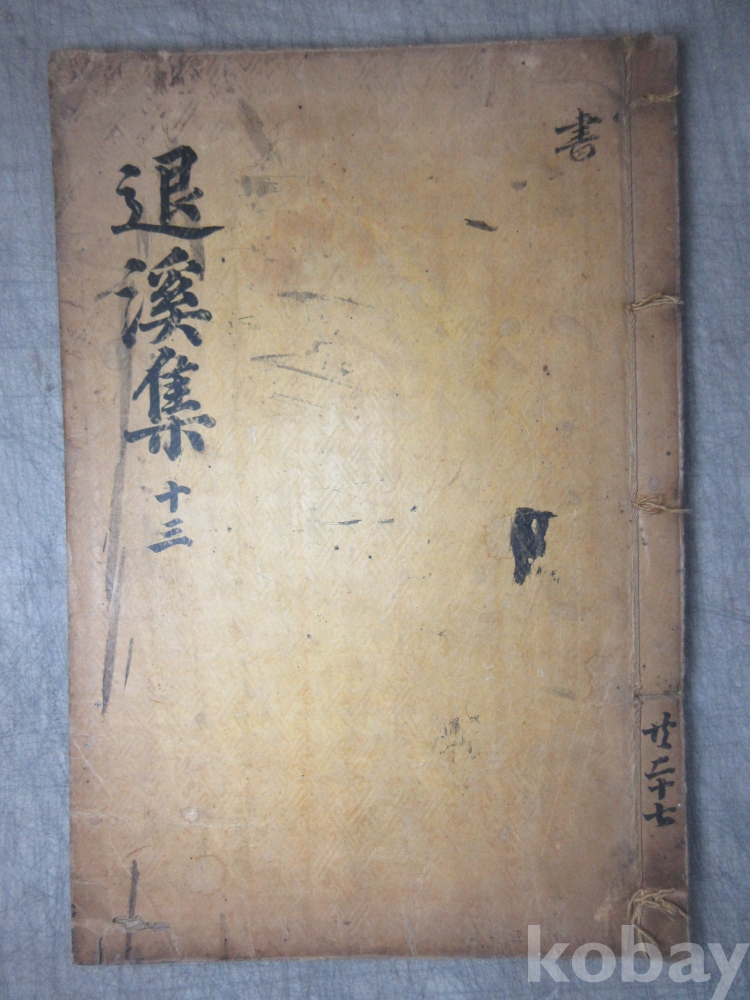 書
退溪集
十三
共二十七
kobay